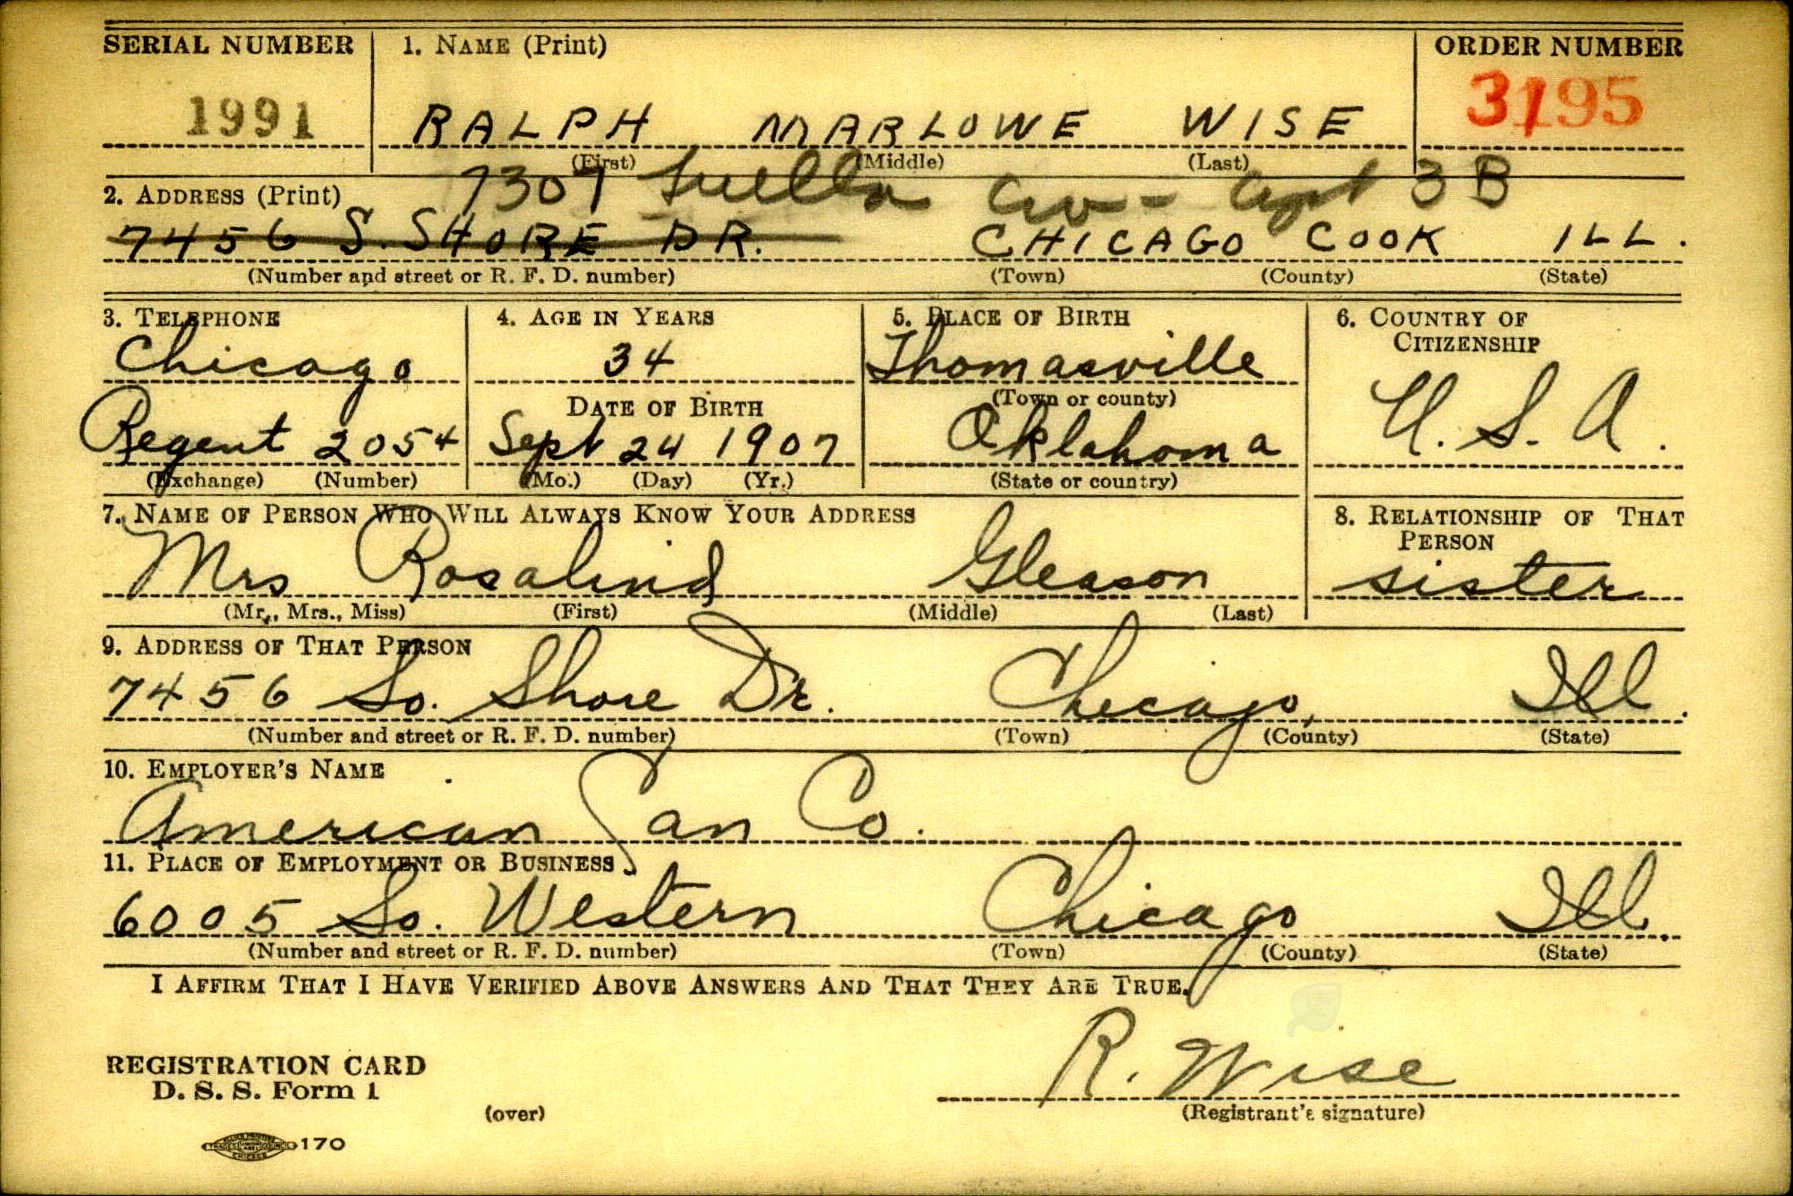 SERIAL NUMBER 1. NAME (Print) ORDER NUMBER
1991 RALPH MARLOWE WISE 3195
(First) (Middle) (Last)
7307 Luella Av - Apt 3B
2. ADDRESS (Print)
7456 S. SHORE DR. CHICAGO COOK ILL.
(Number and street or R. F. D. number) (Town) (County) (State)
3. TELEPHONE 4. AGE IN YEARS 5. PLACE OF BIRTH 6. COUNTRY OF
CITIZENSHIP
Chicago 34 Thomasville
DATE OF BIRTH (Town or county)
U. S. A.
Regent 2054 Sept 24 1907 Oklahoma
(Exchange) (Number) (Mo.) (Day) (Yr.) (State or country)
7. NAME OF PERSON WHO WILL ALWAYS KNOW YOUR ADDRESS 8. RELATIONSHIP OF THAT
PERSON
Mrs Rosalind Gleason sister
(Mr., Mrs., Miss) (First) (Middle) (Last)
9. ADDRESS OF THAT PERSON
7456 So. Shore Dr. Chicago, Ill.
(Number and street or R. F. D. number) (Town) (County) (State)
10. EMPLOYER'S NAME
American Can Co.
11. PLACE OF EMPLOYMENT OR BUSINESS
6005 So. Western Chicago Ill.
(Number and street or R. F. D. number) (Town) (County) (State)
I AFFIRM THAT I HAVE VERIFIED ABOVE ANSWERS AND THAT THEY ARE TRUE.
R. Wise
REGISTRATION CARD
D. S. S. Form 1
(over) (Registrant's signature)
170